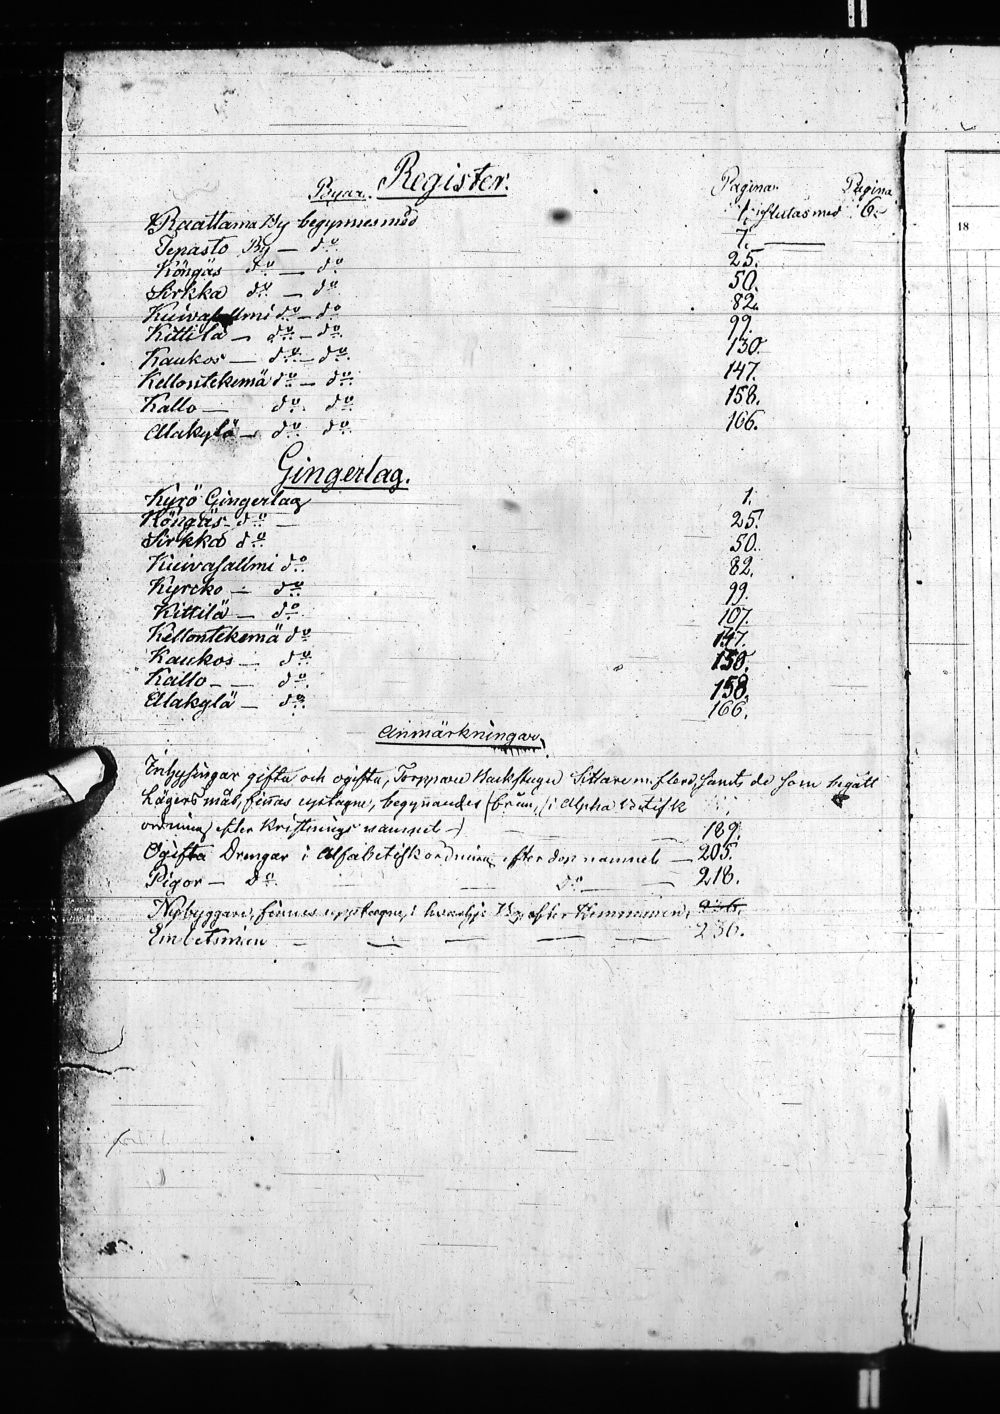 Register.
Byar. Pagina. Pagina
Raattama By begynnes med 1. slutas med 6.
Tepasto By — do 7.
Köngäs do — do 25.
Sirkka do — do 50.
Kuivasallmi do — do 82.
Kittilä — do — do 99.
Kaukos — do — do 130.
Kellontekemä do — do 147.
Kallo — do do 158.
Alakylä — do do 166.
Gingerlag.
Kyrö Gingerlag 1.
Köngäs do — 25.
Sirkka do 50.
Kuivasallmi do 82.
Kyrcko — do 99.
Kittilä — do 107.
Kellontekemä do 147.
Kaukos — do 130.
Kallo — do 158.
Alakylä — do 166.
Anmärkningar,
Inhysingar gifta och ogifta, Torppare Backstugu sittare m. flere, samt de som begått
Lägersmål, finnas upptagne, begynnandes i Alphabetisk
ordning efter Kristnings namnet — 189.
Ogifta Drengar i Alfabetisk ordning efter dop namnet — 205.
Pigor — do do 218.
Nybyggare, finnes upptagne i hvarje By efter Hemmanen,
Embetsmän — 236.
18